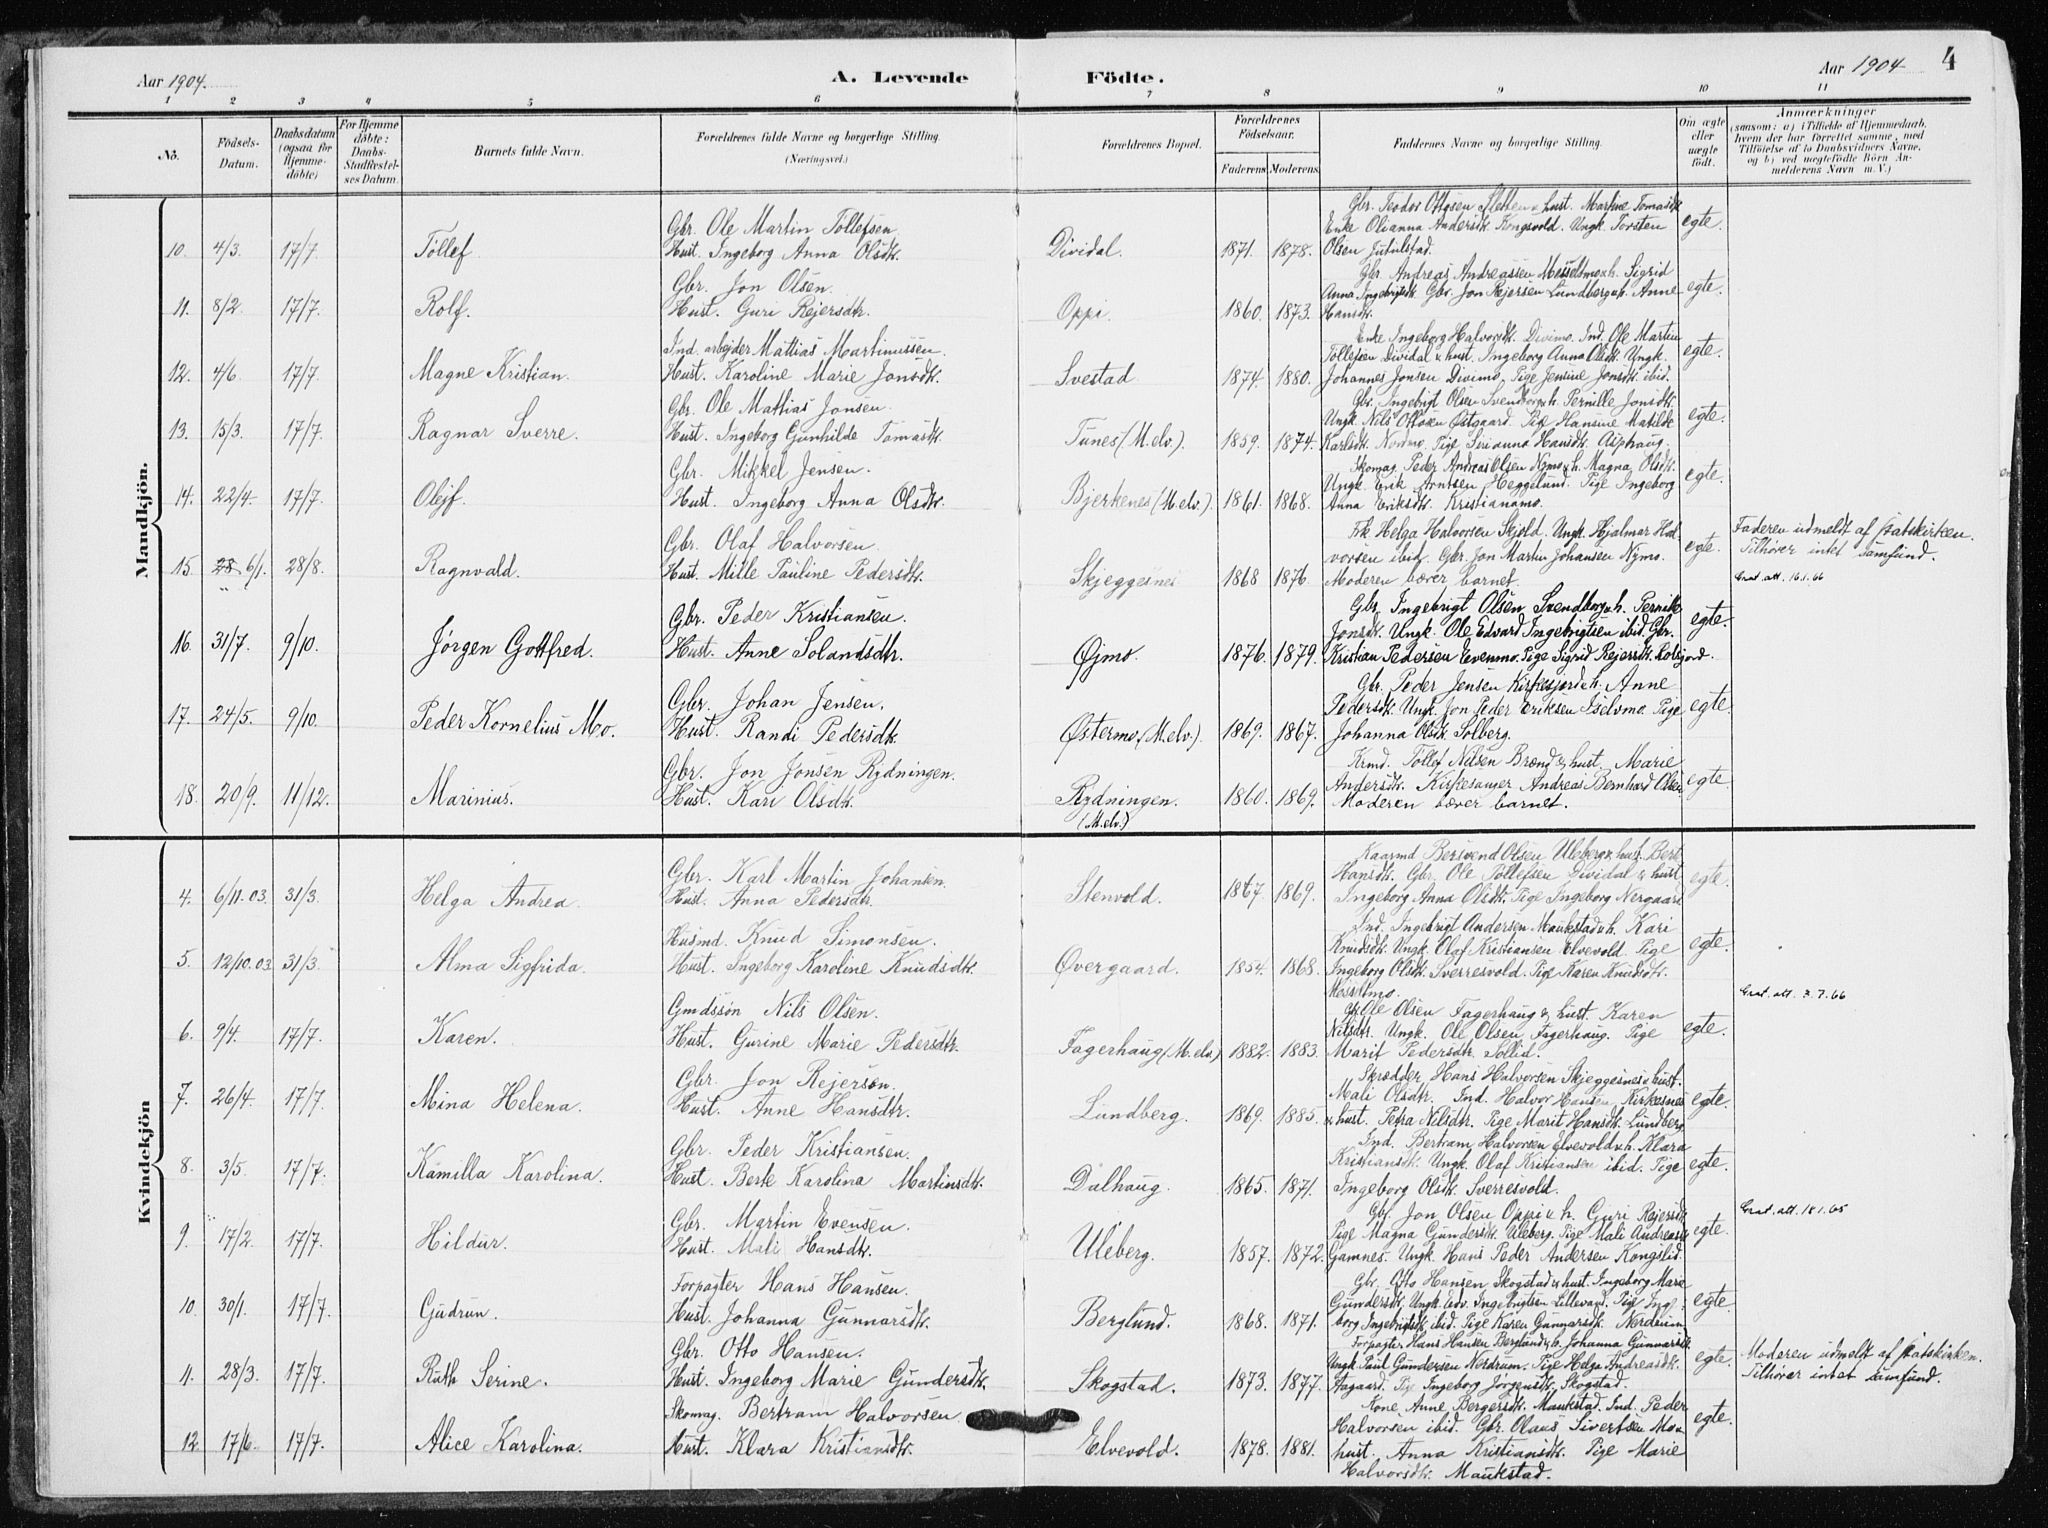 Aar 1904.
A. Levende
Födte.
Aar 1904
4
1 2 3 4 5 6 7 8 9 10 11
Nò.
Födsels-
Datum.
Daabsdatum
(ogsaa for
Hjemme-
döbte)
For Hjemme
döbte:
Daabs-
Stadfæstel-
ses Datum.
Barnets fulde Navn.
Forældrenes fulde Navne og borgerlige Stilling.
(Næringsvei.)
Forældrenes Bopæl.
Forældrenes
Födselsaar.
Faderens
Moderens.
Faddernes Navne og borgerlige Stilling.
Om ægte
eller
uægte
födt.
Anmærkninger
(saasom: a) i Tilfælde af Hjemmedaab,
hvem der har forrettet samme, med
Tilföielse af to Daabsvidners Navne,
og b) ved uægtefödte Börn An-
melderens Navn m. V.)
Mandkjön.
10. 4/3. 17/7. Tollef.
Gbr. Ole Martin Tollefsen.
Hust. Ingeborg Anna Olsdtr.
Dividal. 1871. 1878.
Gbr. Teodor Ottosen Sletten & hust. Martine Tomasdtr.
Enke Olianna Andersdtr. Kongsvold. Ungk. Torsten
Olsen Jutulstad.
egte.
11. 8/2. 17/7. Rolf.
Gbr. Jon Olsen.
Hust. Guri Rejersdtr.
Oppi. 1860. 1873.
Gbr. Andreas Andreassen Messeltmo & h. Sigrid
Anna Ingebrigtsdtr. Gbr. Jon Rejersen Lundberg & h. Anne
Hansdtr.
egte.
12. 4/6. 17/7. Magne Kristian.
Ind. arbejder Mattias Martinussen.
Hust. Karoline Marie Jonsdtr.
Svestad 1874. 1880.
Enke Ingeborg Halvorsdtr. Divimo. Ind. Ole Martin
Tollefsen Dividal & hust. Ingeborg Anna Olsdtr. Ungk.
Johannes Jonsen Divimo. Pige Jensine Jonsdtr. ibid.
egte.
13. 15/3. 17/7. Ragnar Sverre.
Gbr. Ole Mattias Jonsen.
Hust. Ingeborg Gunhilde Tomasdtr.
Tunes (M.elv.). 1859. 1874.
Gbr. Ingebrigt Olsen Svendborg & h. Pernille Jonsdtr.
Ungk. Nils Ottosen Østgaard. Pige Hansine Matilde
Karlsdtr. Normo. Pige Serianna Hansdtr. Alphaug.
egte.
14. 22/4. 17/7. Olejf.
Gbr. Mikkel Jensen.
Hust. Ingeborg Anna Olsdtr.
Bjerkenes (M.elv.). 1861. 1868.
Skomag. Peder Andreas Olsen Nymo & h. Magna Olsdtr.
Ungk. Erik Arntsen Heggelund. Pige Ingeborg
Anna Eriksdtr. Kristianamo.
egte.
15. 28 6/1. 28/8. Ragnvald.
Gbr. Olaf Halvorsen.
Hust. Mille Pauline Pedersdtr.
Skjeggesnes 1868 1876.
Frk Helga Halvorsen Skjold. Ungk. Hjalmar Hal-
vorsen ibid. Gbr. Jon Martin Johansen Nymo.
Moderen bærer barnet.
egte.
Faderen udmeldt af statskirken.
Tilhører intet samfund.
Grat. att. 16.1.66
16. 31/7. 9/10. Jørgen Gottfred.
Gbr. Peder Kristiansen.
Hust. Anne Solandsdtr.
Øjmo. 1876. 1879.
Gbr. Ingebrigt Olsen Svendborg & h. Pernille
Jonsdtr. Ungk. Ole Edvard Ingebrigtsen ibid. Gbr.
Kristian Pedersen Evenmo. Pige Sigrid Rejersdtr. Kolsjord.
egte.
17. 24/5. 9/10. Peder Kornelius Mo.
Gbr. Johan Jensen.
Hust. Randi Pedersdtr.
Østermo. (M.elv.) 1869. 1867.
Gbr. Peder Jensen Kirkesjord & h. Anne
Pedersdtr. Ungk. Jon Peder Eriksen Iselvmo. Pige
Johanna Olsdtr. Solberg.
egte.
18. 20/9. 11/12. Marinius.
Gbr. Jon Jonsen Rydningen.
Hust. Kari Olsdtr.
Rydningen.
(M.elv.)
1860. 1869.
Krmd. Tollef Nilsen Brænd & hust. Marie
Andersdtr. Kirkesanger Andreas Bernhard Olsen
Moderen bærer barnet.
egte
Kvindekjön
4. 6/11.03. 31/3. Helga Andrea.
Gbr. Karl Martin Johansen.
Hust. Anna Pedersdtr.
Stenvold. 1867. 1869.
Kaarmd Bersvend Olsen Uleberg & hust. Berit
Hansdtr. Gbr. Ole Tollefsen Dividal & hust
Ingeborg Anna Olsdtr. Pige Ingeborg Nergaard
egte.
5. 12/10.03. 31/3. Alma Sigfrida.
Husmd. Knud Simonsen.
Hust. Ingeborg Karoline Knudsdtr.
Øvergaard. 1854. 1868.
Ind. Ingebrigt Andersen Maukstad & h. Kari
Knudsdtr. Ungk. Olaf Kristiansen Elvevold. Pige
Ingeborg Olsdtr. Sverresvold. Pige Karen Knudsdtr.
Messeltmo.
egte.
Grat. att. 3.7.66
6. 9/4. 17/7. Karen.
Gmdssøn Nils Olsen.
Hust. Gurine Marie Pedersdtr.
Fagerhaug (M.elv.) 1882. 1883.
Gbr. Ole Olsen Fagerhaug & hust. Karen
Nilsdtr. Ungk. Ole Olsen Fagerhaug. Pige
Marit Pedersdtr. Sollid.
egte.
7. 26/4. 17/7. Mina Helena.
Gbr. Jon Rejersen.
Hust. Anne Hansdtr.
Lundberg. 1869. 1885.
Skrædder Hans Halvorsen Skjeggesnes & hust.
Mali Olsdtr. Ind. Halvor Hansen Kirkesnes
& hust. Petra Nilsdtr. Pige Marit Hansdtr. Lundberg.
egte.
8. 3/5. 17/7. Kamilla Karolina.
Gbr. Peder Kristiansen.
Hust. Berte Karolina Martinsdtr.
Dalhaug. 1865. 1871.
Ind. Bertram Halvorsen Elvevold & h. Klara
Kristiansdtr. Ungk. Olaf Kristiansen ibid. Pige
Ingeborg Olsdtr. Sverresvold.
egte.
Grat. att. 18.1.65
9. 17/2. 17/7. Hildur.
Gbr. Martin Evensen.
Hust. Mali Hansdtr.
Uleberg. 1857. 1872.
Gbr. Jon Olsen Oppi & h. Guri Rejersdtr.
Pige Magna Gundersdtr. Uleberg. Pige Mali Andreasdtr
Gamnes. Ungk. Hans Peder Andersen Kongslid.
egte.
10. 30/1. 17/7. Gudrun.
Forpagter Hans Hansen.
Hust. Johanna Gunnarsdtr.
Berglund. 1868. 1871.
Gbr. Otto Hansen Skogstad & hust. Ingeborg Marie
Gundersdtr. Ungk. Edv. Ingebrigtsen Lillevand. Pige Inge-
borg Ingebrigtsdtr. ibid. Pige Karen Gunnarsdtr. Nerdrum.
egte.
11. 28/3. 17/7. Ruth Serine.
Gbr. Otto Hansen.
Hust. Ingeborg Marie Gundersdtr.
Skogstad. 1873. 1877.
Forpagter Hans Hansen Berglund & h. Johanna Gunnarsdtr.
Ungk. Paul Gundersen Nerdrum. Pige Helga Andreasdtr.
Aagaard. Pige Ingeborg Jørgensdtr. Skogstad.
egte.
Moderen udmeldt af statskirken.
Tilhører intet samfund.
12. 17/6. 17/7. Alice Karolina.
Skomag. Bertram Halvorsen.
Hust. Klara Kristiansdtr.
Elvevold. 1878. 1881.
Kone Anne Bergersdtr. Maukstad. Ind. Peder
Halvorsen ibid. Gbr. Olaus Sivertsen Mo &
hust. Anna Kristiansdtr. Pige Marie
Halvorsdtr. Maukstad.
egte.